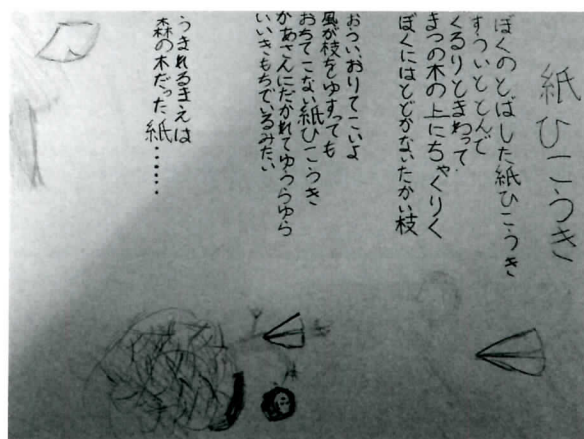 紙ひこうき
ぼくのとばした紙ひこうき
すういととんで
くるりとまわって
まつの木の上にちゃくりく
ぼくにはとどかないたかい枝
おういおりてこいよ
風が枝をゆすっても
おちてこない紙ひこうき
かあさんにだかれてゆうらゆら
いいきもちでいるみたい
うまれるまえは
森の木だった紙……